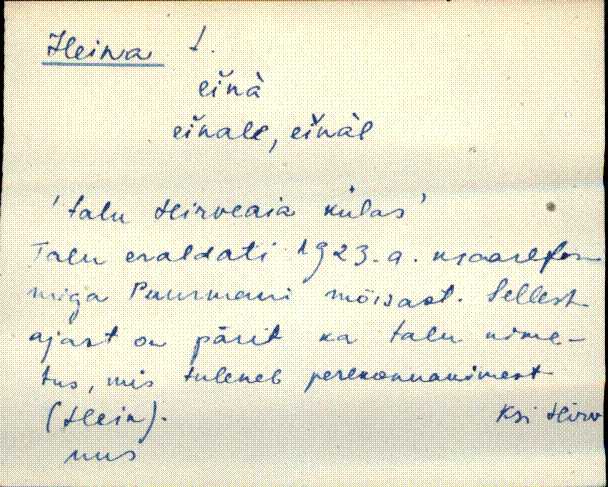 Heina t.
eĭnà
eĭnale, eĭnàl
'talu Hirveaia külas'
Talu eraldati 1923. a. maarefor-
miga Puurmani mõisast. Sellest
ajast on pärit ka talu nime-
tus, mis tuleneb perekonnanimest
(Hein). Ksi Hirv
uus